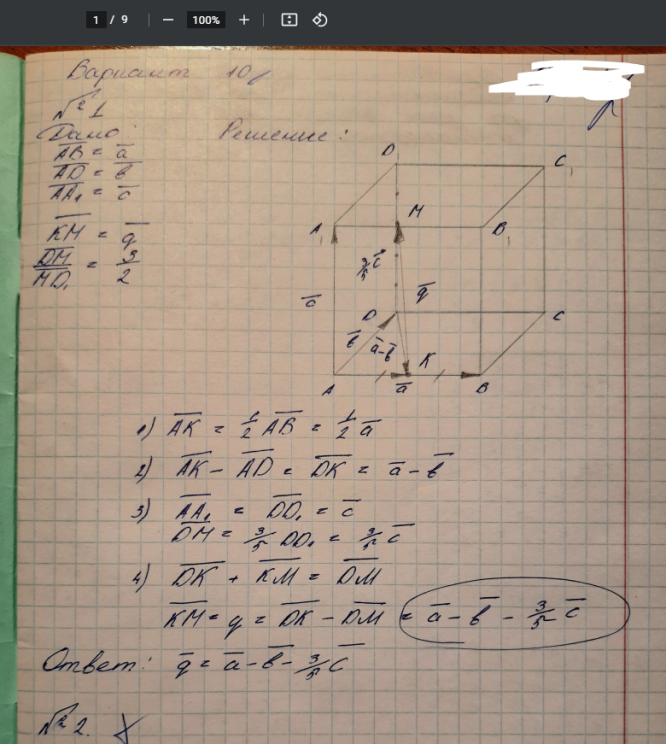 1 / 9 — 100% +
Вариант 10
№1
Дано: Решение:
AB = a
AD = b
AA₁ = c
KM = q
DM / MD₁ = 3 / 2
D₁ C₁
A₁ M B₁
3/5 c
c D q C
b a-b K
A a B
1) AK = 1/2 AB = 1/2 a
2) AK - AD = DK = a - b
3) AA₁ = DD₁ = c
DM = 3/5 DD₁ = 3/5 c
4) DK + KM = DM
KM = q = DK - DM = a - b - 3/5 c
Ответ: q = a - b - 3/5 c
№2.